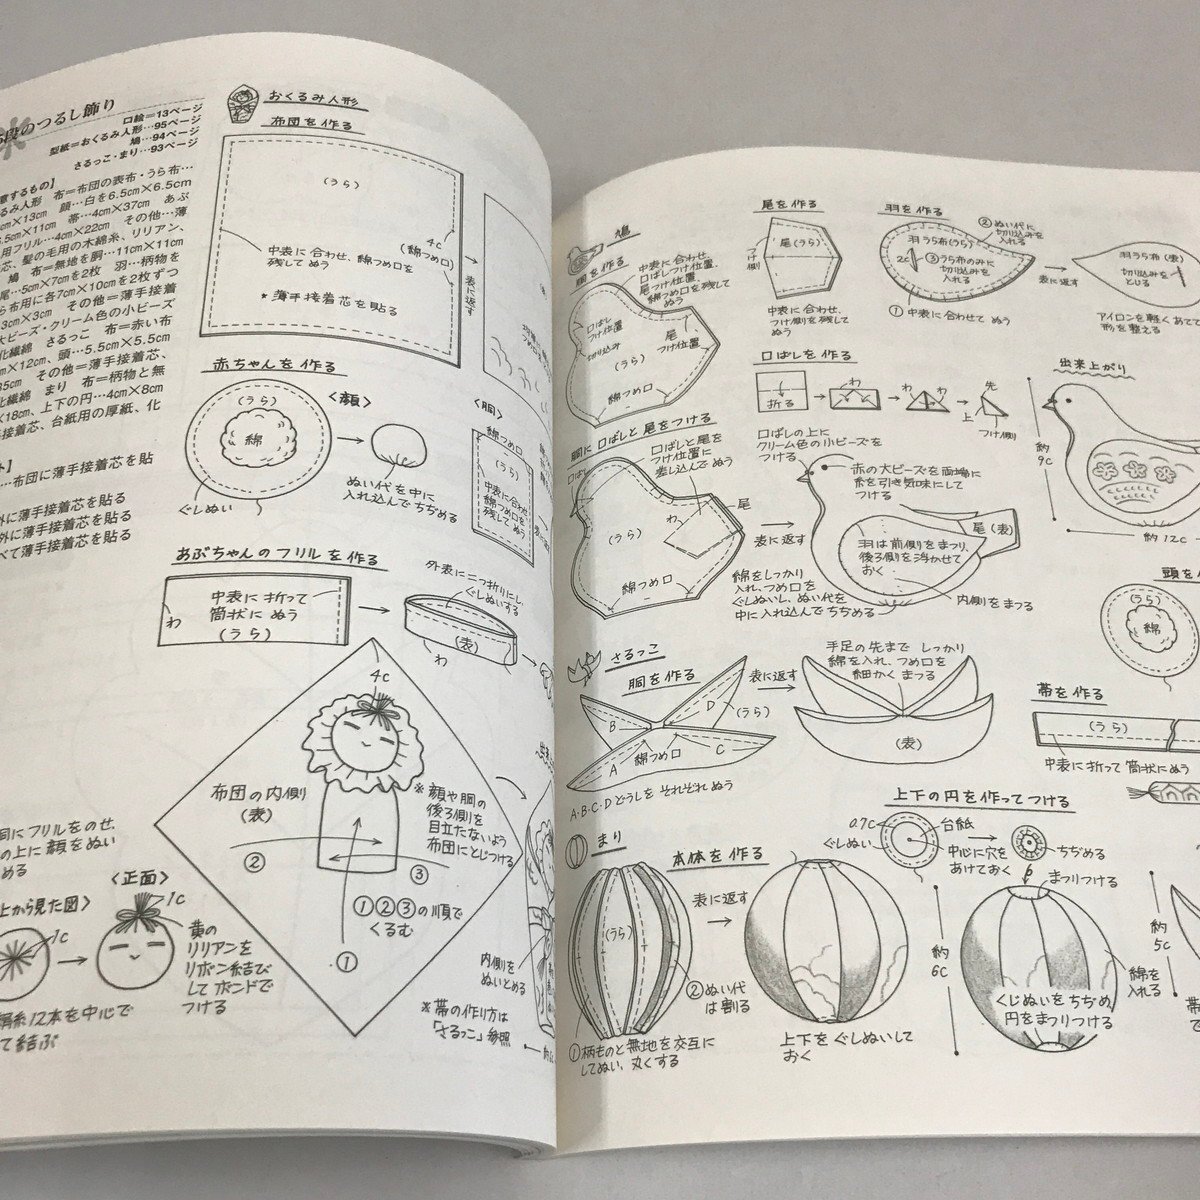 段のつるし飾り
口絵=13ページ
型紙=おくるみ人形…95ページ
鳩…94ページ
さるっこ・まり…93ページ
るみ人形 布=布団の表布・うら布…
cm×13cm 顔…白を6.5cm×6.5cm
.5cm×11cm 帯…4cm×37cm あぶ
用フリル…4cm×22cm その他…薄
芯、髪の毛用の木綿糸、リリアン、
鳩 布=無地を胴…11cm×11cm
尾…5cm×7cmを2枚 羽…柄物を
ら布用に各7cm×10cmを2枚ずつ
3cm×3cm その他=薄手接着
大ビーズ・クリーム色の小ビーズ
化繊綿 さるっこ 布=赤い布
cm×12cm、頭…5.5cm×5.5cm
35cm その他=薄手接着芯、
化繊綿 まり 布=柄物と無
×18cm、上下の円…4cm×8cm
手接着芯、台紙用の厚紙、化
…布団に薄手接着芯を貼
外に薄手接着芯を貼る
外に薄手接着芯を貼る
べて薄手接着芯を貼る
おくるみ人形
布団を作る
(うら)
4c
(綿つめ口)
中表に合わせ、綿つめ口を
残して ぬう
*薄手接着芯を貼る
表に返す
赤ちゃんを作る
(うら)
綿
ぐしぬい
<顔>
ぬい代を中に
入れ込んで ちぢめる
<胴>
綿つめ口
(うら)
中表に合わせ
綿つめ口を
残して ぬう
表に
あぶちゃんのフリルを作る
中表に折って
筒状に ぬう
(うら)
わ
外表に二つ折りにし、
ぐしぬいする
(表)
わ
4c
布団の内側
(表)
※顔や胴の
後ろ側を
目立たないよう
布団にとじつける
②
③
①②③の順で
くるむ
①
同にフリルをのせ、
の上に顔をぬい
める
上から見た図>
1c
<正面>
1c
黄の
リリアンを
リボン結び
して ボンドで
つける
糸12本を中心で
て結ぶ
内側を
ぬいとめる
※帯の作り方は
「さるっこ」参照
鳩
胴を作る
中表に合わせ
口ばしつけ位置、
尾つけ位置、
綿つめ口を残して
ぬう
口ばし
つけ位置
切り込み
尾
つけ位置
(うら)
綿つめ口
尾を作る
つけ側
尾(うら)
中表に合わせ、
つけ側を残して
ぬう
羽を作る
②ぬい代に
切り込みを
入れる
羽うら布(うら)
2c
③うら布のみに
切り込みを
入れる
①中表に合わせて ぬう
表に返す
羽うら布(表)
切り込みを
とじる
アイロンを軽く あて
形を整える
口ばしを作る
折る
わ
わ
わ
先
上
つけ側
出来上がり
約
9c
約12c
胴に口ばしと尾をつける
口ばし
口ばしと尾を
つけ位置に
差し込んで ぬう
わ
尾
(うら)
綿つめ口
表に返す
綿をしっかり
入れ、つめ口を
ぐしぬいし、ぬい代を
中に入れ込んで ちぢめる
口ばしの上に
クリーム色の小ビーズを
つける
赤の大ビーズを両端に
糸を引き気味にして
つける
羽は前側をまつり、
後ろ側を浮かせて
おく
尾(表)
内側をまつる
頭を
(うら)
綿
さるっこ
胴を作る
B
D
(うら)
A
綿つめ口
C
A・B・C・Dどうしを それぞれ ぬう
表に返す
手足の先まで しっかり
綿を入れ、つめ口を
細かく まつる
(表)
帯を作る
(うら)
中表に折って 筒状に ぬう
まり
本体を作る
(うら)
②ぬい代
は割る
①柄ものと無地を交互に
してぬい、丸くする
表に返す
上下をぐしぬいして
おく
上下の円を作ってつける
0.7c
ぐしぬい
台紙
中心に穴を
あけておく
ちぢめる
まつりつける
約
6c
綿を
入れる
くしぬいをちぢめ、
円をまつりつける
約
5c